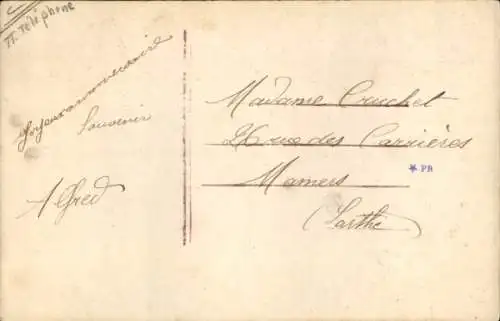 TT. Téléphone
Joyeux anniversaire
Souvenir
Alfred
Madame Cruchet
26 rue des Carrières
Mamers
Sarthe
* PR